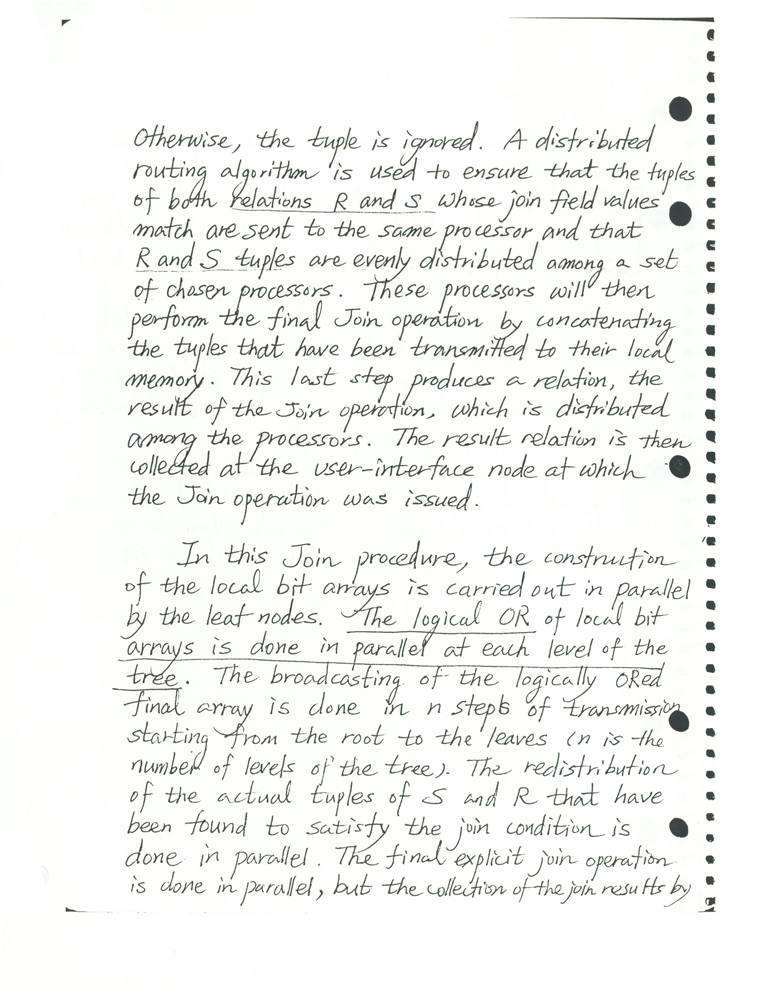 Otherwise, the tuple is ignored. A distributed
routing algorithm is used to ensure that the tuples
of both relations R and S whose join field values
match are sent to the same processor and that
R and S tuples are evenly distributed among a set
of chosen processors. These processors will then
perform the final Join operation by concatenating
the tuples that have been transmitted to their local
memory. This last step produces a relation, the
result of the Join operation, which is distributed
among the processors. The result relation is then
collected at the user-interface node at which
the Join operation was issued.
In this Join procedure, the construction
of the local bit arrays is carried out in parallel
by the leaf nodes. The logical OR of local bit
arrays is done in parallel at each level of the
tree. The broadcasting of the logically ORed
final array is done in n steps of transmission
starting from the root to the leaves (n is the
number of levels of the tree). The redistribution
of the actual tuples of S and R that have
been found to satisfy the join condition is
done in parallel. The final explicit join operation
is done in parallel, but the collection of the join results by